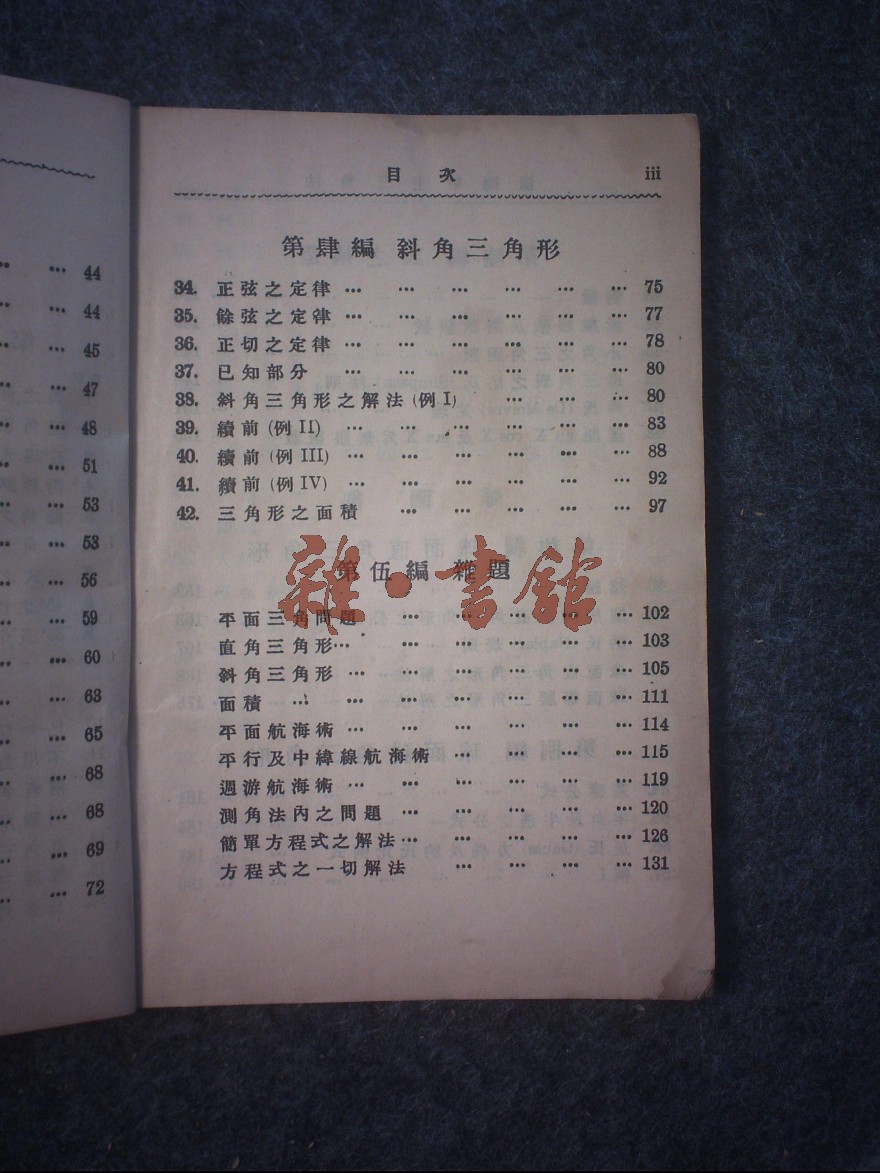 44
44
45
47
48
51
53
53
56
59
60
63
65
68
68
69
72
目次 iii
第肆編 斜角三角形
34. 正弦之定律 … … … … … … 75
35. 餘弦之定律 … … … … … … 77
36. 正切之定律 … … … … … … 78
37. 已知部分 … … … … … … 80
38. 斜角三角形之解法 (例 I) … … … … 80
39. 續前 (例 II) … … … … … … 83
40. 續前 (例 III) … … … … … … 88
41. 續前 (例 IV) … … … … … … 92
42. 三角形之面積 … … … … … 97
第伍編 雜題
雜·書館
平面三角問題 … … … … … … 102
直角三角形… … … … … … 103
斜角三角形 … … … … … … 105
面積 … … … … … … … 111
平面航海術 … … … … … … 114
平行及中緯線航海術 … … … … 115
週游航海術 … … … … … … 119
測角法內之問題 … … … … … 120
簡單方程式之解法… … … … … 126
方程式之一切解法 … … … … 131